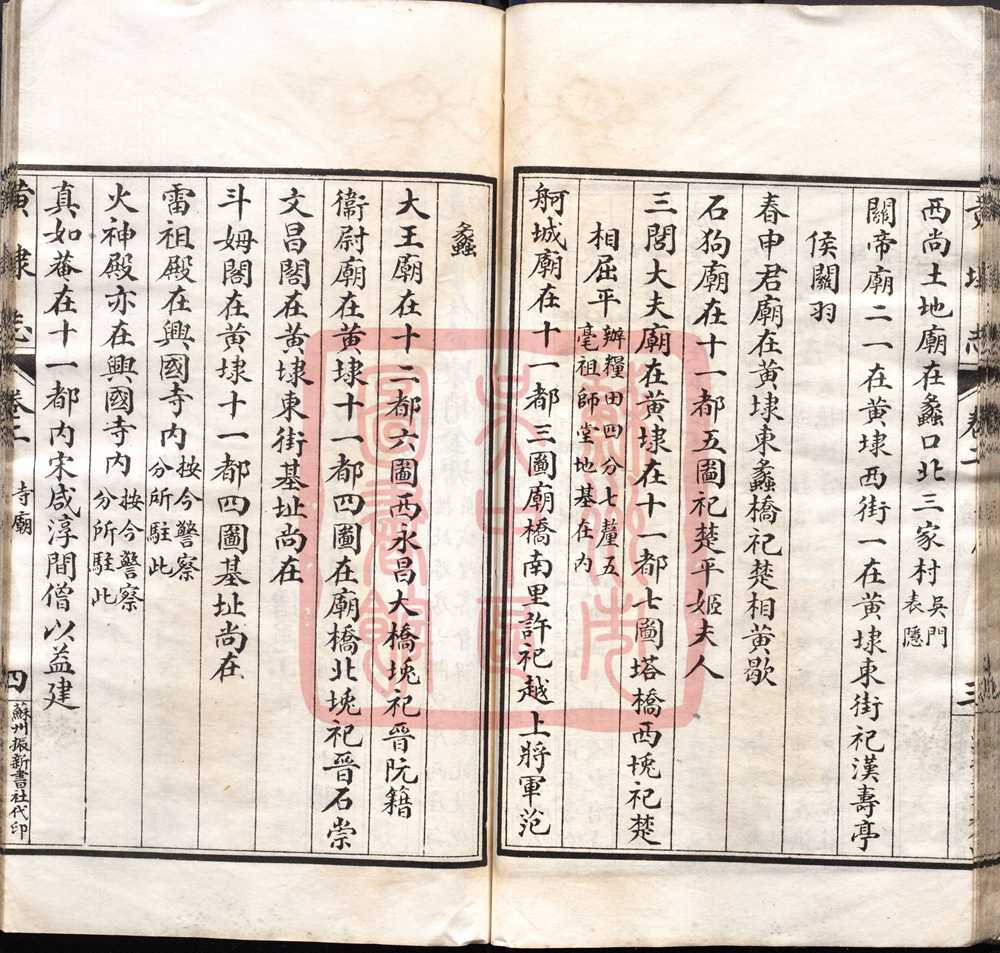 黃埭志 卷二
三
西尚土地廟在蠡口北三家村吳門表隱
關帝廟二一在黃埭西街一在黃埭東街祀漢壽亭
侯關羽
春申君廟在黃埭東蠡橋祀楚相黃歇
石狗廟在十一都五圖祀楚平姬夫人
三閭大夫廟在黃埭在十一都七圖塔橋西堍祀楚
相屈平辦糧田四分七釐五毫祖師堂地基在內
舸城廟在十一都三圖廟橋南里許祀越上將軍范
蠡
大王廟在十二都六圖西永昌大橋堍祀晉阮籍
衞尉廟在黃埭十一都四圖在廟橋北堍祀晉石崇
文昌閣在黃埭東街基址尚在
斗姆閣在黃埭十一都四圖基址尚在
雷祖殿在興國寺內按今警察分所駐此
火神殿亦在興國寺內按今警察分所駐此
真如菴在十一都內宋咸淳間僧以益建
黃埭志 卷二 寺廟 四 蘇州振新書社代印